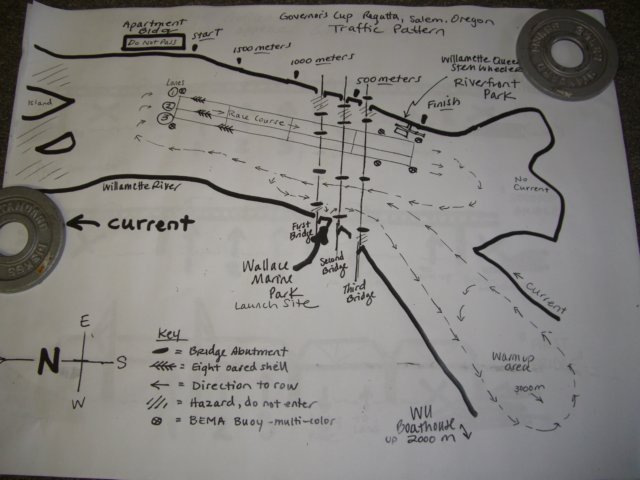 Governor's Cup Regatta, Salem, Oregon
Traffic Pattern
Apartment
Bldg
Do Not Pass
START
1500 meters
1000 meters
500 meters
Willamette Queen
Stern Wheeler
Riverfront
Park
Finish
Island
Lanes
1
2
3
Race Course
No
Current
Willamette River
← current
First
Bridge
Second
Bridge
Third
Bridge
Wallace
Marine
Park
Launch Site
Current
Warm up
area
3000m
WU
Boathouse
up 2000 m
E
N
S
W
Key
= Bridge Abutment
= Eight oared shell
= Direction to row
= Hazard, do not enter
= BEMA Buoy -multi-color